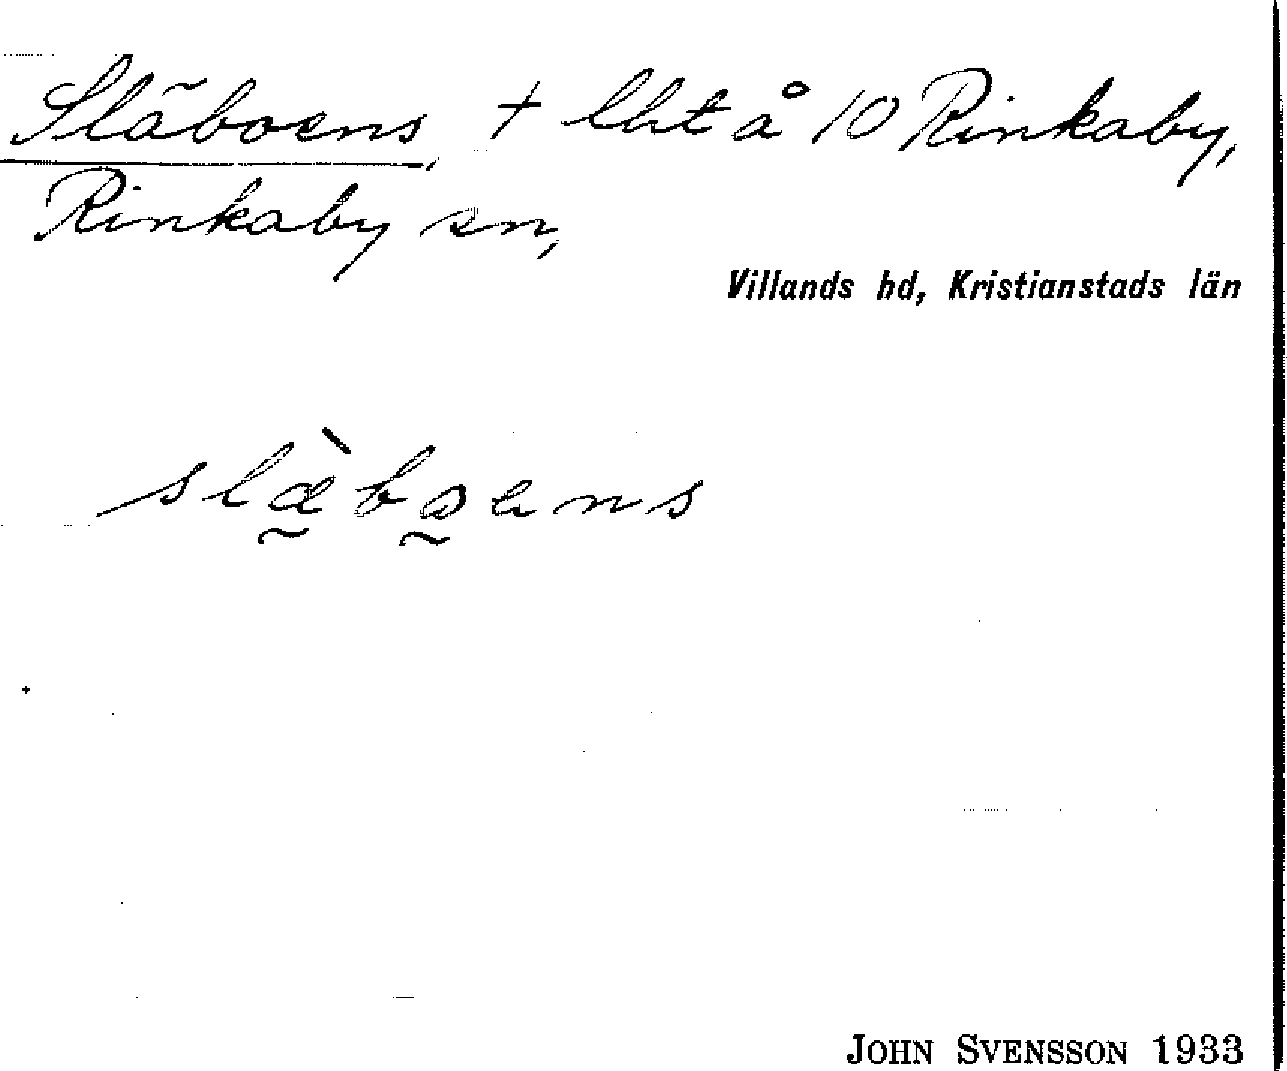 Släboens, + lht å 10 Rinkaby,
Rinkaby sn,
Villands hd, Kristianstads län
slæ̰̀bo̰ens
JOHN SVENSSON 1933